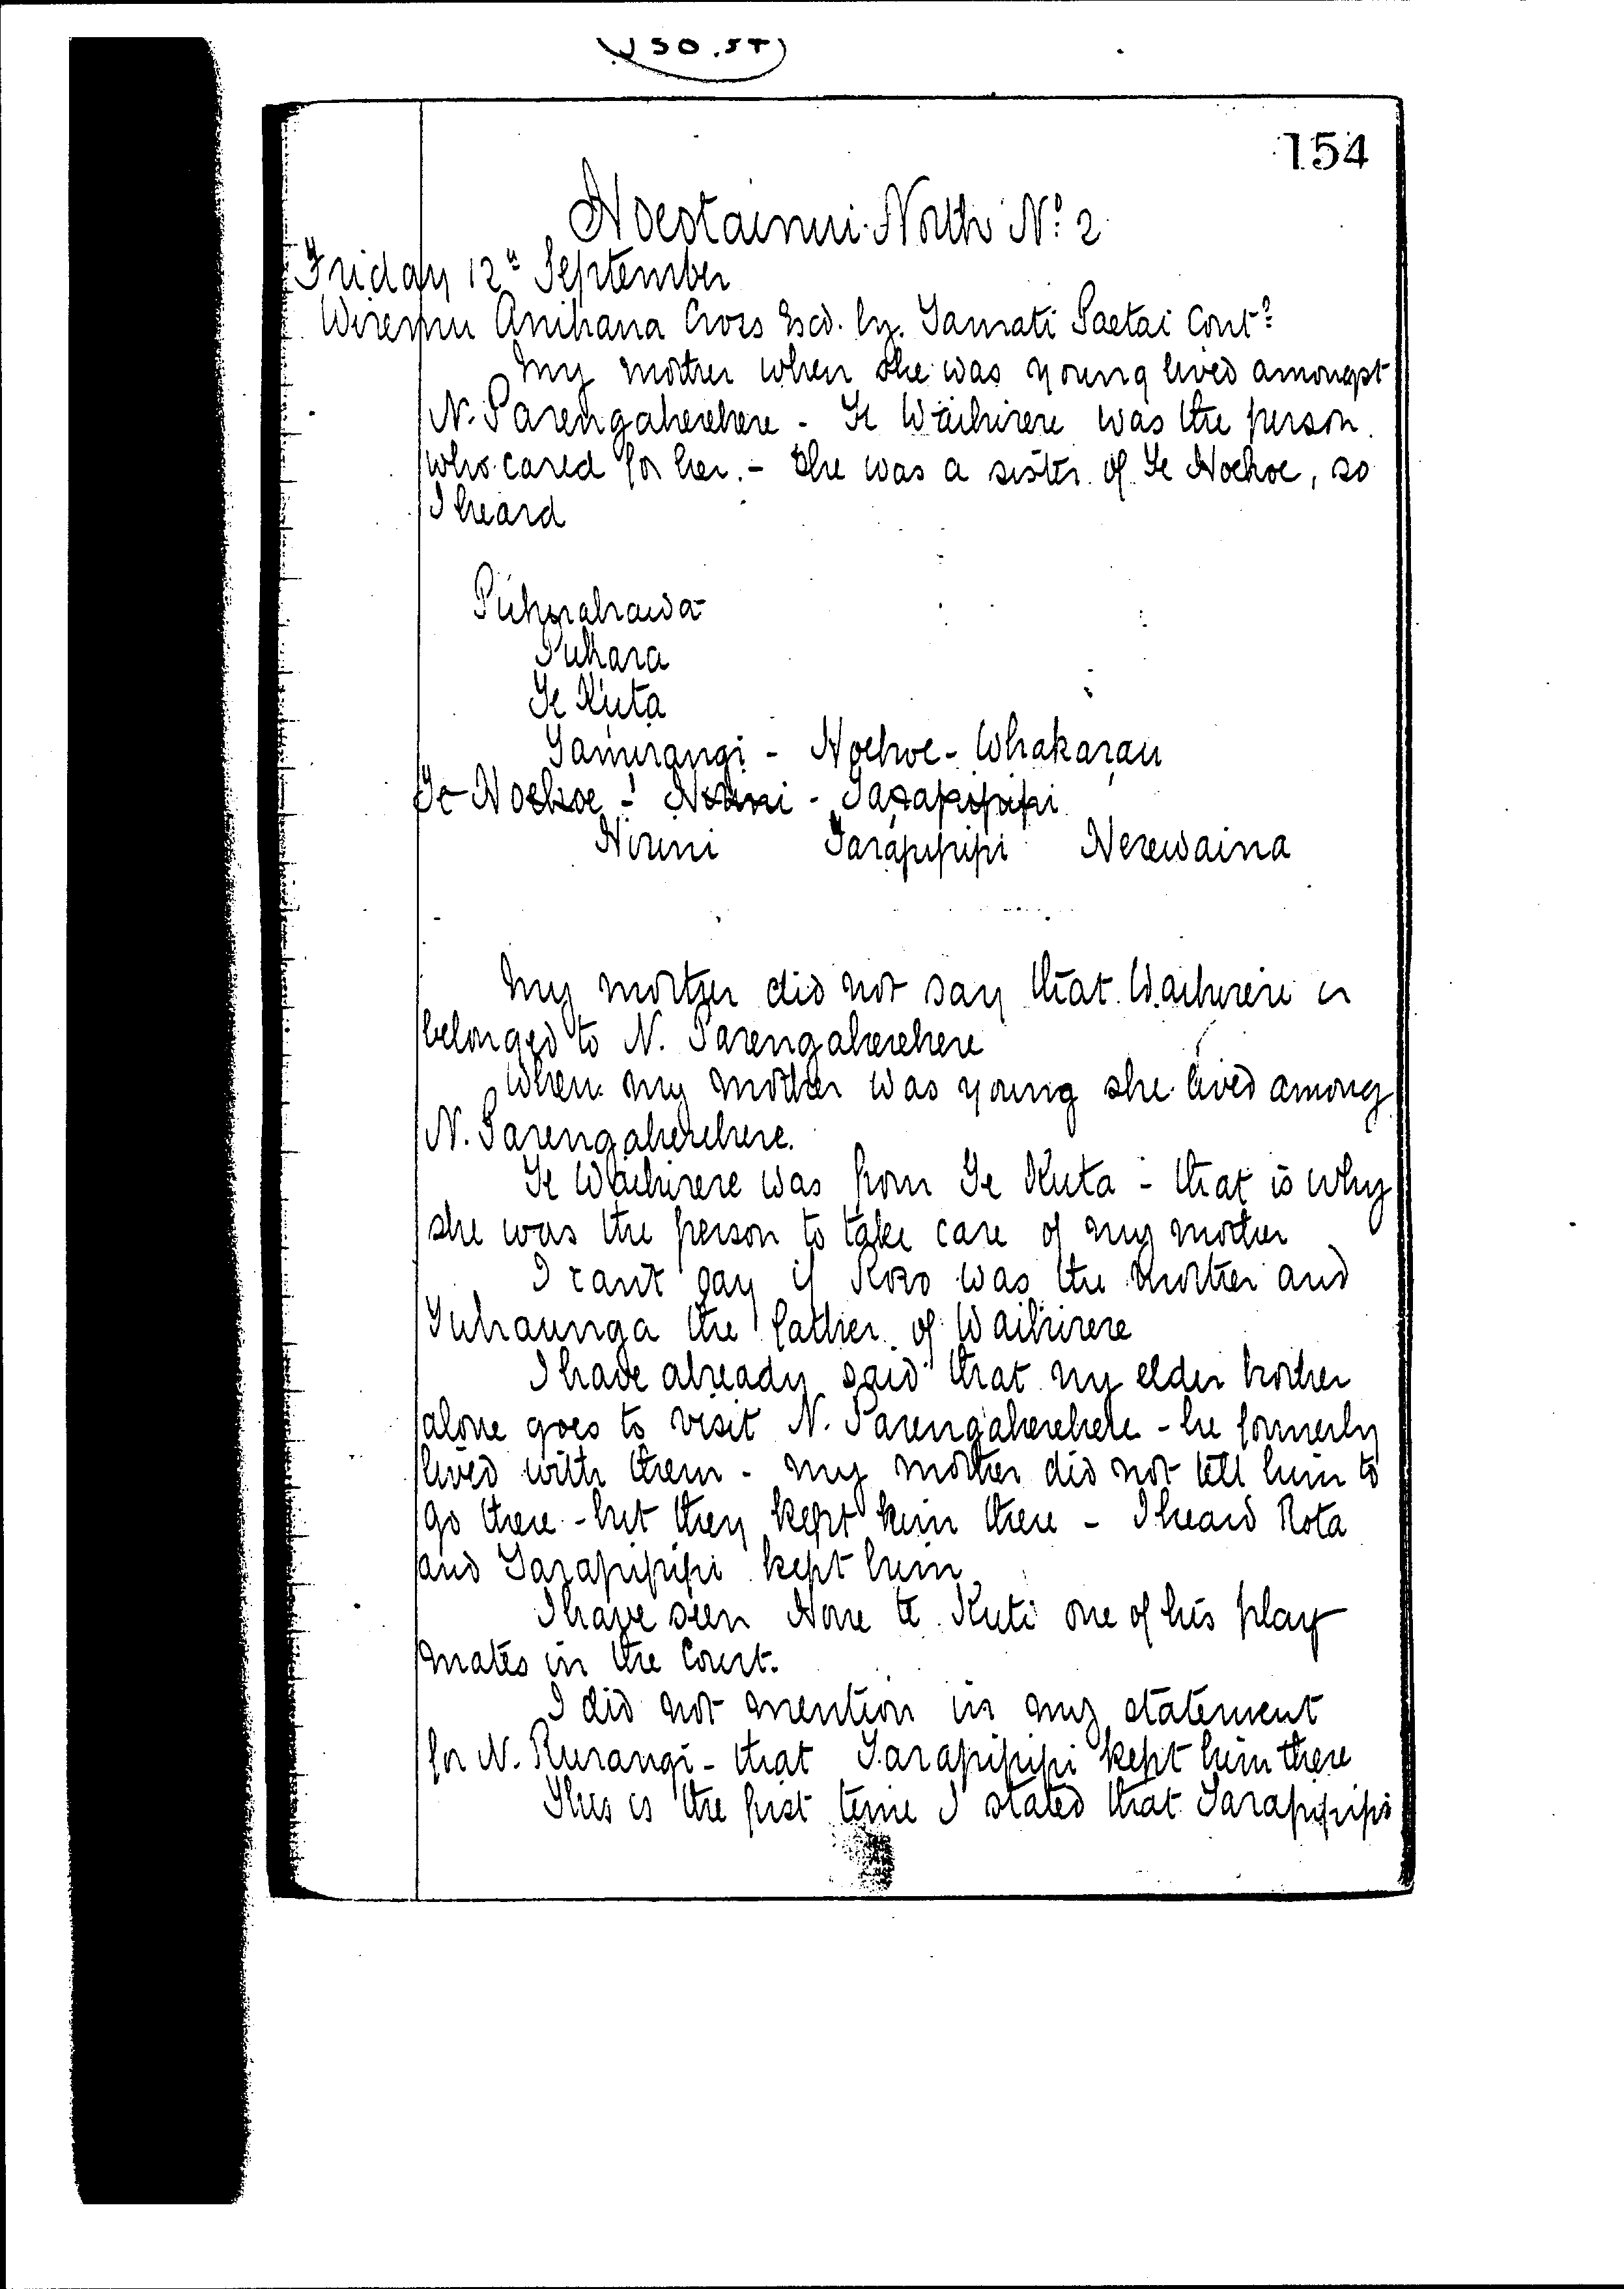 154
Hoeotainui North No. 2
Friday 12th September
Wiremu Anihana Cross Exd. by Tamati Paetai Contd
My mother when she was young lived amongst
N. Parengaherehere - Te Waihirere was the person
who cared for her. - She was a sister of Te Hoehoe, so
I heard
Puhara
Te Kuta
Tamurangi - Hoehoe - Whakarau
Te Hoehoe - Niruni - Tarapipipi
Niruni Tarapipipi Nerewaina
My mother did not say that Waihirere is
belonged to N. Parengaherehere
When my mother was young she lived among
N. Parengaherehere.
Te Waihirere was from Te Kuta - that is why
she was the person to take care of my mother
I cant say if Koro was the mother and
Tuhaunga the father of Waihirere
I have already said that my elder brother
alone goes to visit N. Parengaherehere - he formerly
lived with them - my mother did not tell him to
go there - but they kept him there - I heard Rota
and Tarapipipi kept him
I have seen Hone te Kuti one of his play
mates in the Court.
I did not mention in my statement
for N. Rurangi - that Tarapipipi kept him there
This is the first time I stated that Tarapipipi